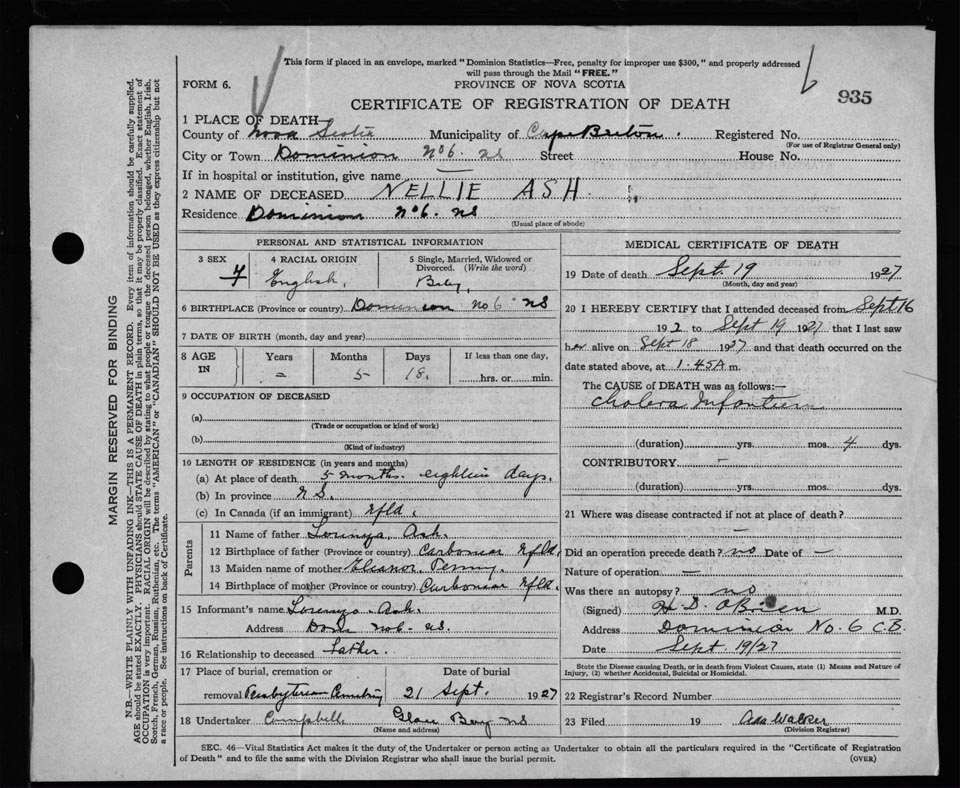 This form if placed in an envelope, marked "Dominion Statistics—Free, penalty for improper use $300," and properly addressed
will pass through the Mail "FREE."
FORM 6.
PROVINCE OF NOVA SCOTIA
935
CERTIFICATE OF REGISTRATION OF DEATH
1 PLACE OF DEATH—
County of Nova Scotia Municipality of Cape Breton. Registered No.
(For use of Registrar General only)
City or Town Dominion No 6. NS Street House No.
If in hospital or institution, give name —
2 NAME OF DECEASED NELLIE ASH.
Residence Dominion No 6. NS
(Usual place of abode)
PERSONAL AND STATISTICAL INFORMATION
3 SEX 4 RACIAL ORIGIN 5 Single, Married, Widowed or
Divorced. (Write the word)
F English. Baby.
6 BIRTHPLACE (Province or country) Dominion No 6 NS
7 DATE OF BIRTH (month, day and year)
8 AGE IN Years Months Days If less than one day,
– 5 18. hrs. or min.
9 OCCUPATION OF DECEASED
(a)
(Trade or occupation or kind of work)
(b)
(Kind of industry)
10 LENGTH OF RESIDENCE (in years and months)
(a) At place of death 5 months. eightein days.
(b) In province N S.
(c) In Canada (if an immigrant) Nfld.
Parents
11 Name of father Ash.
12 Birthplace of father (Province or country) Carbonear Nfld.
13 Maiden name of mother Eleanor Penny.
14 Birthplace of mother (Province or country) Carbonear Nfld.
15 Informant's name Lorenzo Ash.
Address Dom No 6. NS.
16 Relationship to deceased Father.
17 Place of burial, cremation or Date of burial
removal Presbyterian Cemetery 21 Sept. 1927
18 Undertaker Campbell. Glace Bay NS
(Name and address)
MEDICAL CERTIFICATE OF DEATH
19 Date of death Sept. 19 1927
(Month, day and year)
20 I HEREBY CERTIFY that I attended deceased from Sept 16
192 to Sept 19 1927 that I last saw
her alive on Sept 18 1927 and that death occurred on the
date stated above, at 1.45 A m.
The CAUSE OF DEATH was as follows:—
Cholera Infantum
(duration) yrs. mos. 4 dys.
CONTRIBUTORY —
(duration) yrs. mos. dys.
21 Where was disease contracted if not at place of death?
—
Did an operation precede death? no Date of —
Nature of operation —
Was there an autopsy? no
(Signed) H. D. O'Brien M.D.
Address Dominion No. 6 C.B.
Date Sept 19/27
State the Disease causing Death, or in death from Violent Causes, state (1) Means and Nature of
Injury, (2) whether Accidental, Suicidal or Homicidal.
22 Registrar's Record Number
23 Filed 19 Ada Walker
(Division Registrar)
SEC. 46—Vital Statistics Act makes it the duty of the Undertaker or person acting as Undertaker to obtain all the particulars required in the "Certificate of Registration
of Death" and to file the same with the Division Registrar who shall issue the burial permit.
(OVER)
MARGIN RESERVED FOR BINDING
N.B.—WRITE PLAINLY WITH UNFADING INK—THIS IS A PERMANENT RECORD. Every item of information should be carefully supplied.
AGE should be stated EXACTLY. PHYSICIANS should STATE CAUSE OF DEATH in plain terms, so that it may be properly classified. Exact statement of
OCCUPATION is very important. RACIAL ORIGIN will be described by stating to what people or tongue the deceased person belonged, whether English, Irish,
Scotch, French, German, Russian, Ruthenian, etc. The terms "AMERICAN" or "CANADIAN" SHOULD NOT BE USED as they express citizenship but not
a race or people. See instructions on back of Certificate.